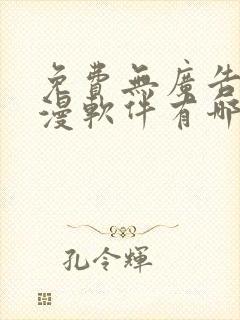 免費無廣告
漫軟件有哪
孔令輝